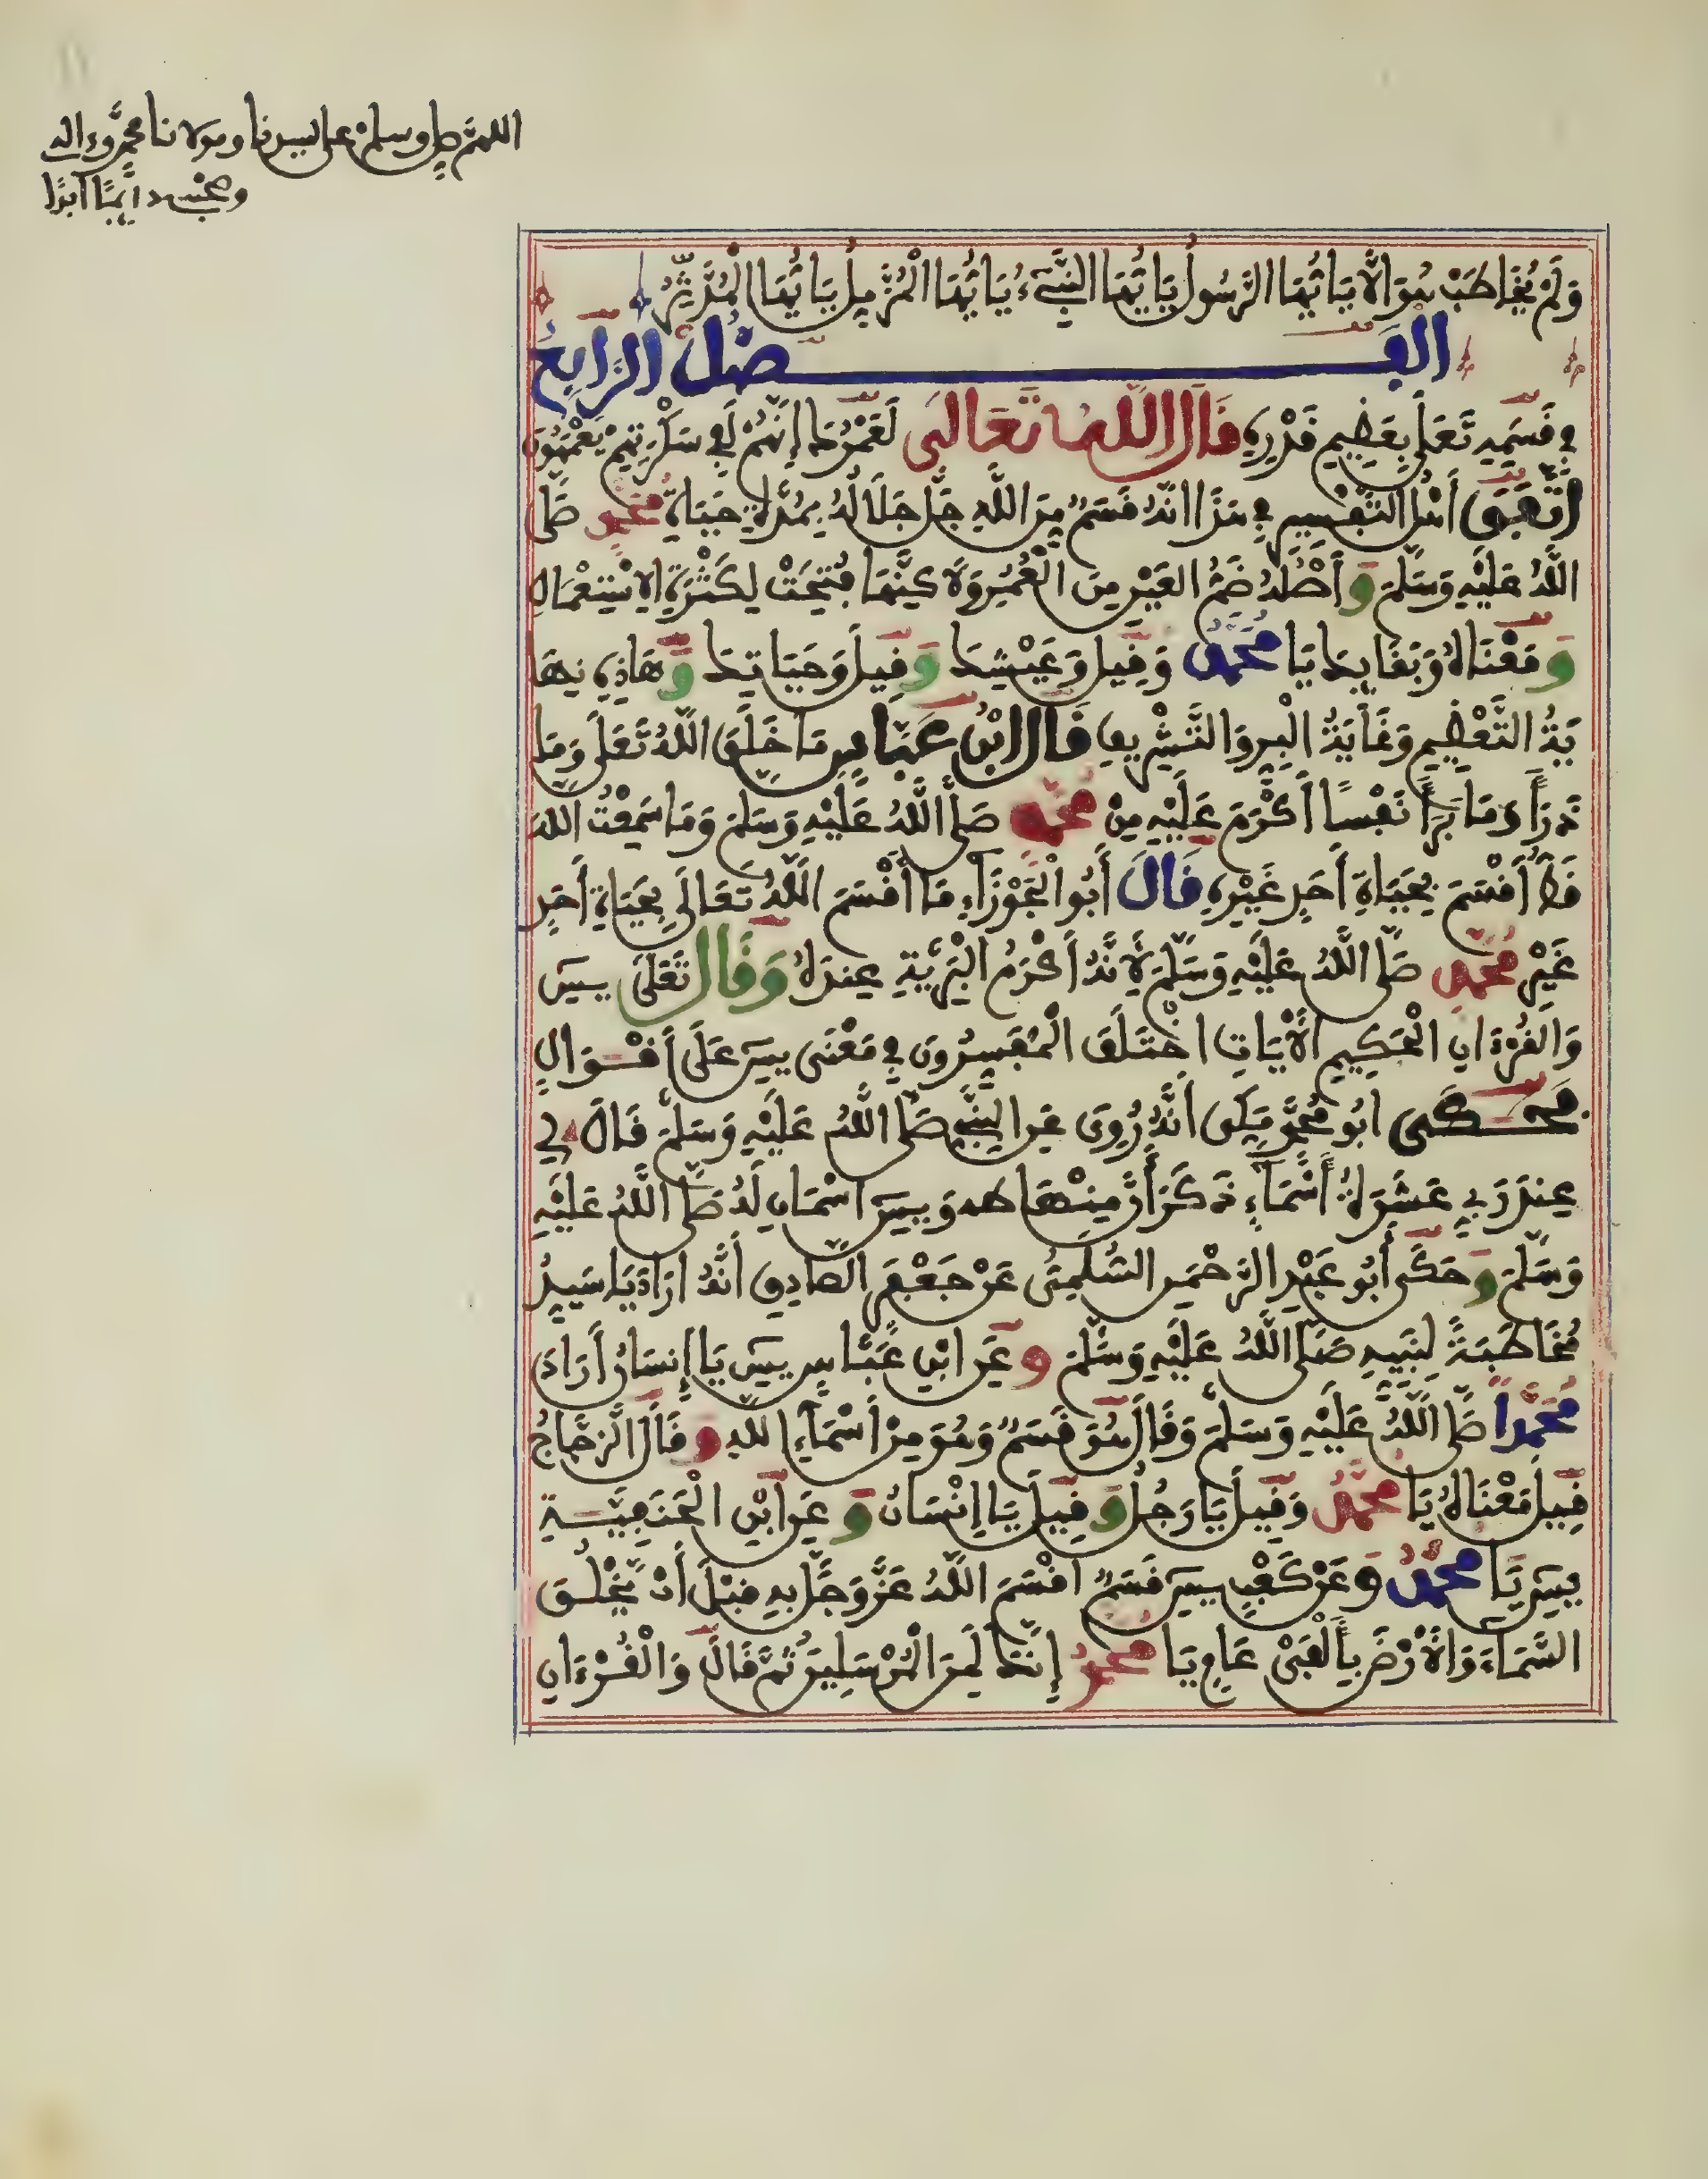 اللهم صل وسلم على سيدنا ومولانا محمد وءاله
وصحبه دائما أبدا
وَلَمْ يُخَاطَبْ هُوَ الَّا يَا أَيُّهَا الرَّسُولُ يَا أَيُّهَا النَّبِيءُ يَا أَيُّهَا الْمُزَّمِّلُ يَا أَيُّهَا الْمُدَّثِّرُ
الفصْلُ الرَّابِعُ
فِي قَسَمِهِ تَعَلَى بِعَظِيمِ قَدْرِهِ قَالَ اللَّهُ تَعَالَى لَعَمْرُكَ إِنَّهُمْ لَفِي سَكْرَتِهِمْ يَعْمَهُونَ
اتَّفَقَ أَهْلُ التَّفْسِيرِ فِي هَذَا انَّهُ قَسَمٌ مِنَ اللَّهِ جَلَّ جَلَالُهُ بِمُدَّةِ حَيَاةِ مُحَمَّدٍ صَلَّى
اللَّهُ عَلَيْهِ وَسَلَّمَ وَأَصْلُهُ ضَمُّ الْعَيْنِ مِنَ الْعُمُرِ وَلَكِنَّهَا فُتِحَتْ لِكَثْرَةِ الِاسْتِعْمَالِ
وَمَعْنَاهُ وَبَقَايِكَ يَا مُحَمَّدُ وَقِيلَ وَعَيْشِكَ وَقِيلَ وَحَيَاتِكَ وَهَاذِهِ نِهَا
يَةُ التَّعْظِيمِ وَغَايَةُ الْبِرِّ وَالتَّشْرِيفِ قَالَ ابْنُ عَبَّاسٍ مَا خَلَقَ اللَّهُ تَعَلَى وَمَا
ذَرَأَ وَمَا بَرَأَ نَفْسًا أَكْرَمَ عَلَيْهِ مِنْ مُحَمَّدٍ صَلَّى اللَّهُ عَلَيْهِ وَسَلَّمَ وَمَا سَمِعْتُ اللَّهَ
قَالَ أَقْسَمَ بِحَيَاةِ أَحَدٍ غَيْرِهِ قَالَ أَبُو الْجَوْزَاءِ مَا أَقْسَمَ اللَّهُ تَعَالَى بِحَيَاةِ أَحَدٍ
غَيْرِ مُحَمَّدٍ صَلَّى اللَّهُ عَلَيْهِ وَسَلَّمَ لِأَنَّهُ أَكْرَمُ الْبَرِيَّةِ عِنْدَهُ وَقَالَ تَعَلَى يسِ
وَالقُرْءَانِ الْحَكِيمِ الْآيَاتِ اخْتَلَفَ الْمُفَسِّرُونَ فِي مَعْنَى يسِ عَلَى أَقْوَالٍ
فَحَكَى ابُو مُحَمَّدٍ مَكِّي أَنَّهُ رُوِيَ عَنِ النَّبِيِّ صَلَّى اللَّهُ عَلَيْهِ وَسَلَّمَ قَالَ لِي
عِنْدَ رَبِّي عَشَرَةُ أَسْمَاءٍ ذَكَرَ أَنَّ مِنْهَا طه وَيسِ اسْمَانِ لَهُ صَلَّى اللَّهُ عَلَيْهِ
وَسَلَّمَ وَحَكَى أَبُو عَبْدِ الرَّحْمَنِ السُّلَمِيُّ عَنْ جَعْفَرٍ الصَّادِقِ أَنَّهُ ارَادَ يَا سَيِّدُ
مُخَاطَبَةً لِنَبِيِّهِ صَلَّى اللَّهُ عَلَيْهِ وَسَلَّمَ وَعَنِ ابْنِ عَبَّاسٍ يسِ يَا إِنسَانُ أَرَادَ
مُحَمَّدًا صَلَّى اللَّهُ عَلَيْهِ وَسَلَّمَ وَقَالَ هُوَ قَسَمٌ وَهُوَ مِنْ أَسْمَاءِ اللهِ وَقَالَ الزَّجَّاجُ
قِيلَ مَعْنَاهُ يَا مُحَمَّدُ وَقِيلَ يَا رَجُلُ وَقِيلَ يَا إِنْسَانُ وَعَنِ ابْنِ الْحَنَفِيَّةِ
يسِ يَا مُحَمَّدُ وَعَنْ كَعْبٍ يسِ قَسَمٌ اقْسَمَ اللَّهُ عَزَّ وَجَلَّ بِهِ قَبْلَ أَنْ يَخْلُقَ
السَّمَاءَ وَالْأَرْضَ بِأَلْفَيْ عَامٍ يَا مُحَمَّدُ إِنَّكَ لَمِنَ الْمُرْسَلِينَ ثُمَّ قَالَ وَالْقُرْءَانِ